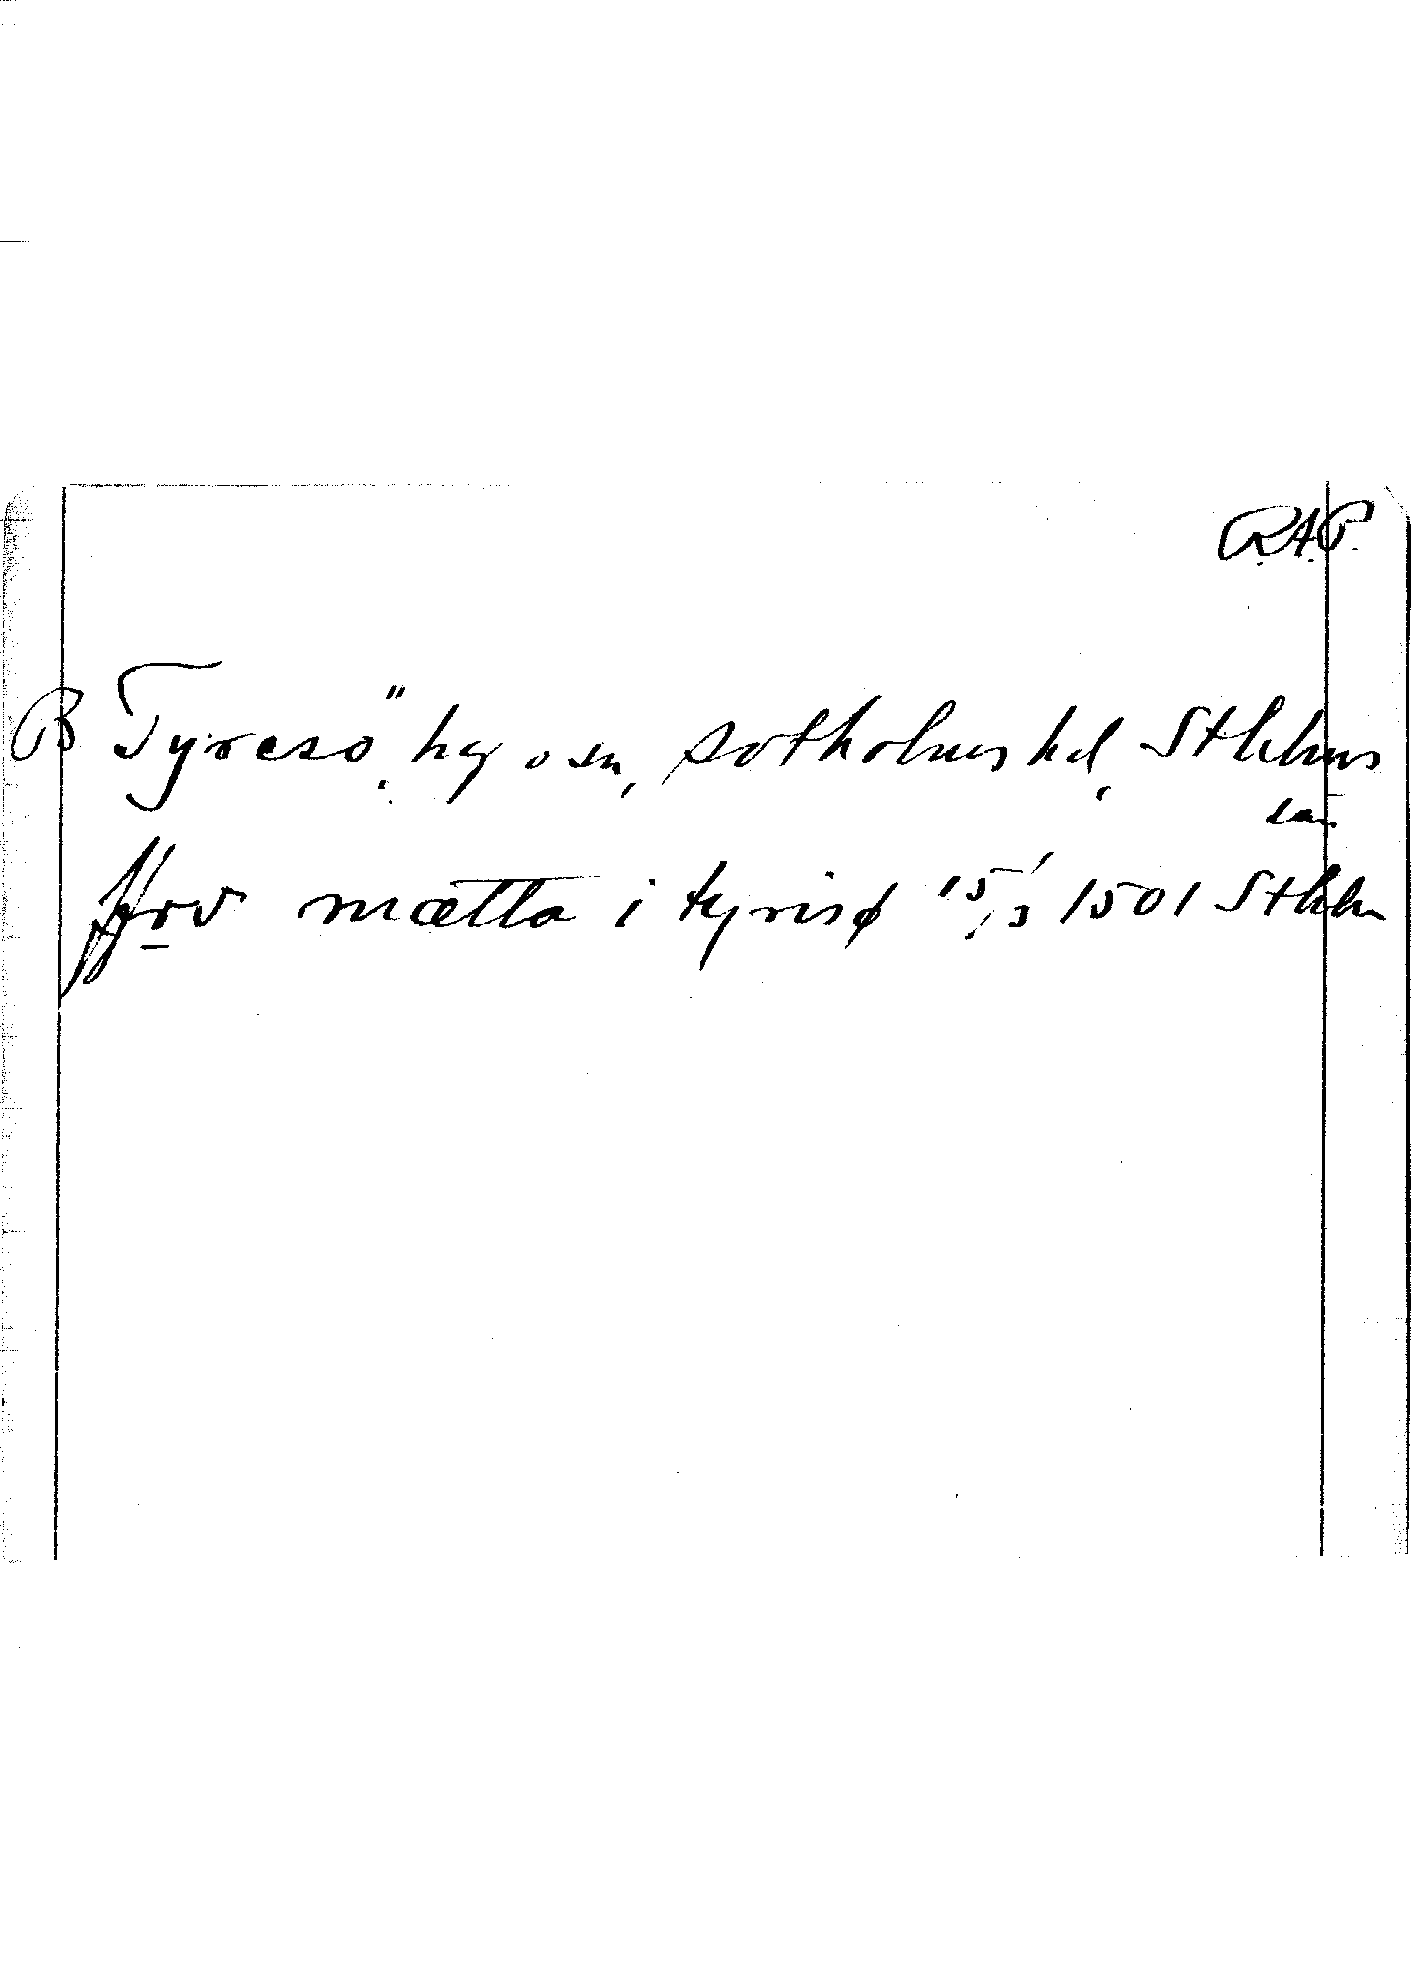 R.A.P.
B Tyresö, hg o sn, Sotholms hd, Sthlms
län
ffrv mætta i tyrisø 15/3 1501 Sthlm